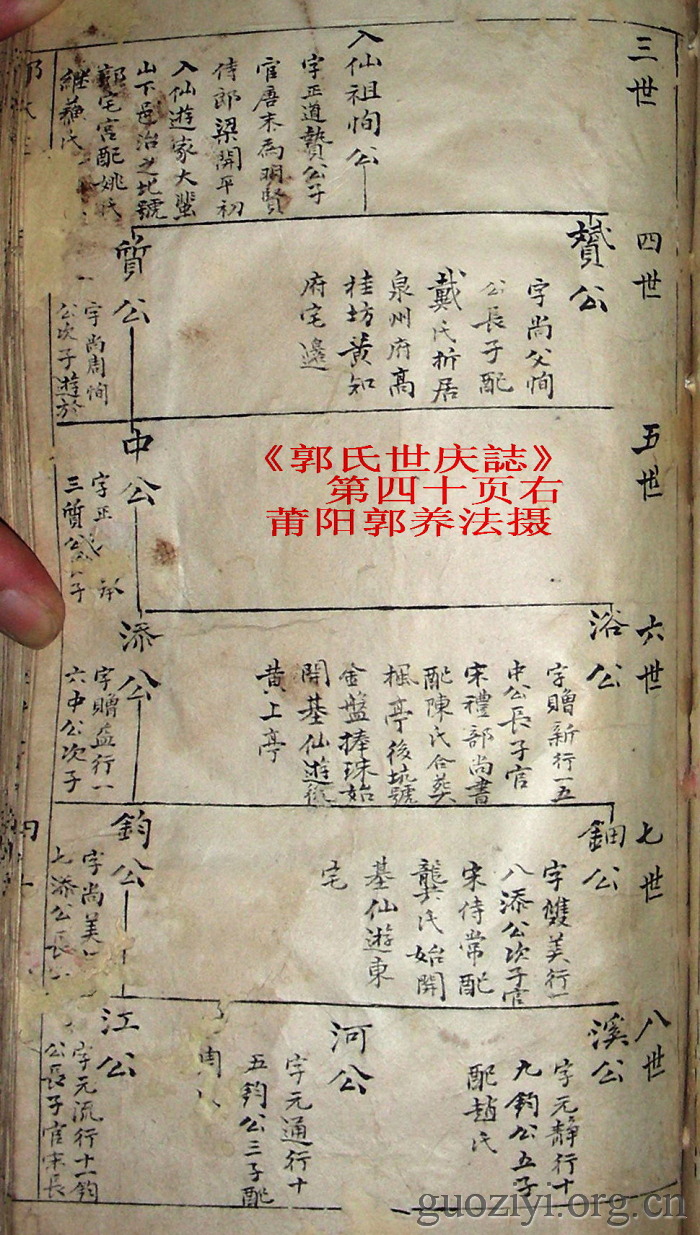 三世
入仙祖恂公
字正道贊公子
官唐末為明賢
侍郎梁開平初
入仙遊家大蜚
山下邑治之北號
郭宅宮配姚氏
繼蘇氏
四世
贇公
字尚父恂
公長子配
戴氏折居
泉州府髙
桂坊黃知
府宅邊
質公
字尚周恂
公次子遊於
五世
中公
字正
三質公
子
《郭氏世庆誌》
第四十页右
莆阳郭养法摄
六世
浴公
字贈新行一五
中公長子官
宋禮部尚書
配陳氏合葬
楓亭後坑號
金盤捧珠始
開基仙遊後
黃上亭
添公
字贈益行一
六中公次子
七世
鈿公
字雙美行一
八添公次子官
宋侍常配
龔氏始開
基仙遊東
宅
鈞公
字尚美
七添公長
八世
溪公
字元靜行十
九鈞公五子
配趙氏
河公
字元通行十
五鈞公三子配
周
江公
字元流行十一鈞
公長子官宋長
guoziyi.org.cn